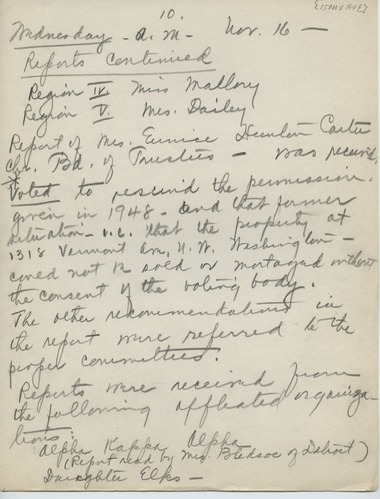 10.
Wednesday - a.m - Nov. 16 -
Reports continued
Region IV Miss Mallory
Region V. Mrs. Dailey
Report of Mrs. Eunice Hunton Carter
Chr. Bd. of Trustees - was received
Voted to rescind the permission
given in 1948 - and that former
situation - i.e. that the property at
1318 Vermont Ave, N.W. Washington -
could not be sold or mortaged without
the consent of the voting body.
The other recommendations in
the report were referred to the
proper committees.
Reports were received from
the following affleated organiza-
tions:
Alpha Kappa Alpha
(Report read by Mrs. Bledsoe of Detroit)
Daughter Elks -